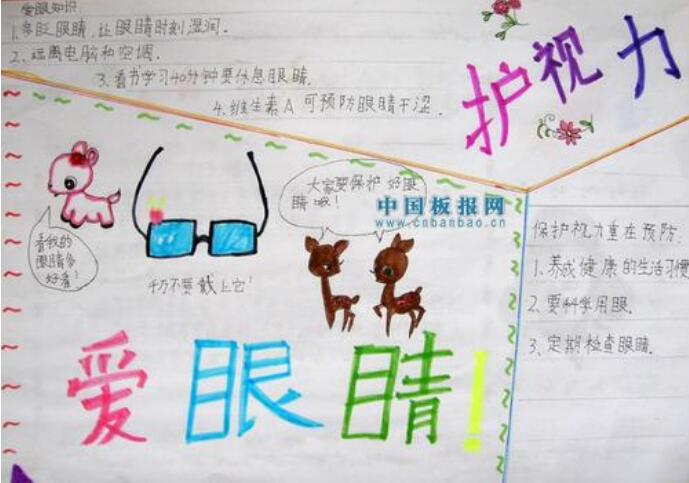 爱眼知识:
1、多眨眼睛,让眼睛时刻湿润.
2、远离电脑和空调.
3、看书学习40分钟要休息眼睛.
4、维生素A可预防眼睛干涩.
护视力
看我的
眼睛多
好看!
千万不要戴上它!
大家要保护好眼
睛哦!
中国板报网
www.cnbanbao.cn
保护视力重在预防:
1、养成健康的生活习惯
2、要科学用眼.
3、定期检查眼睛.
爱眼睛!